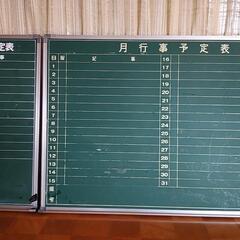 定表
事
月行事予定表
日 曜 記 事 16
1 17
2 18
3 19
4 20
5 21
6 22
7 23
8 24
9 25
10 26
11 27
12 28
13 29
14 30
15 31